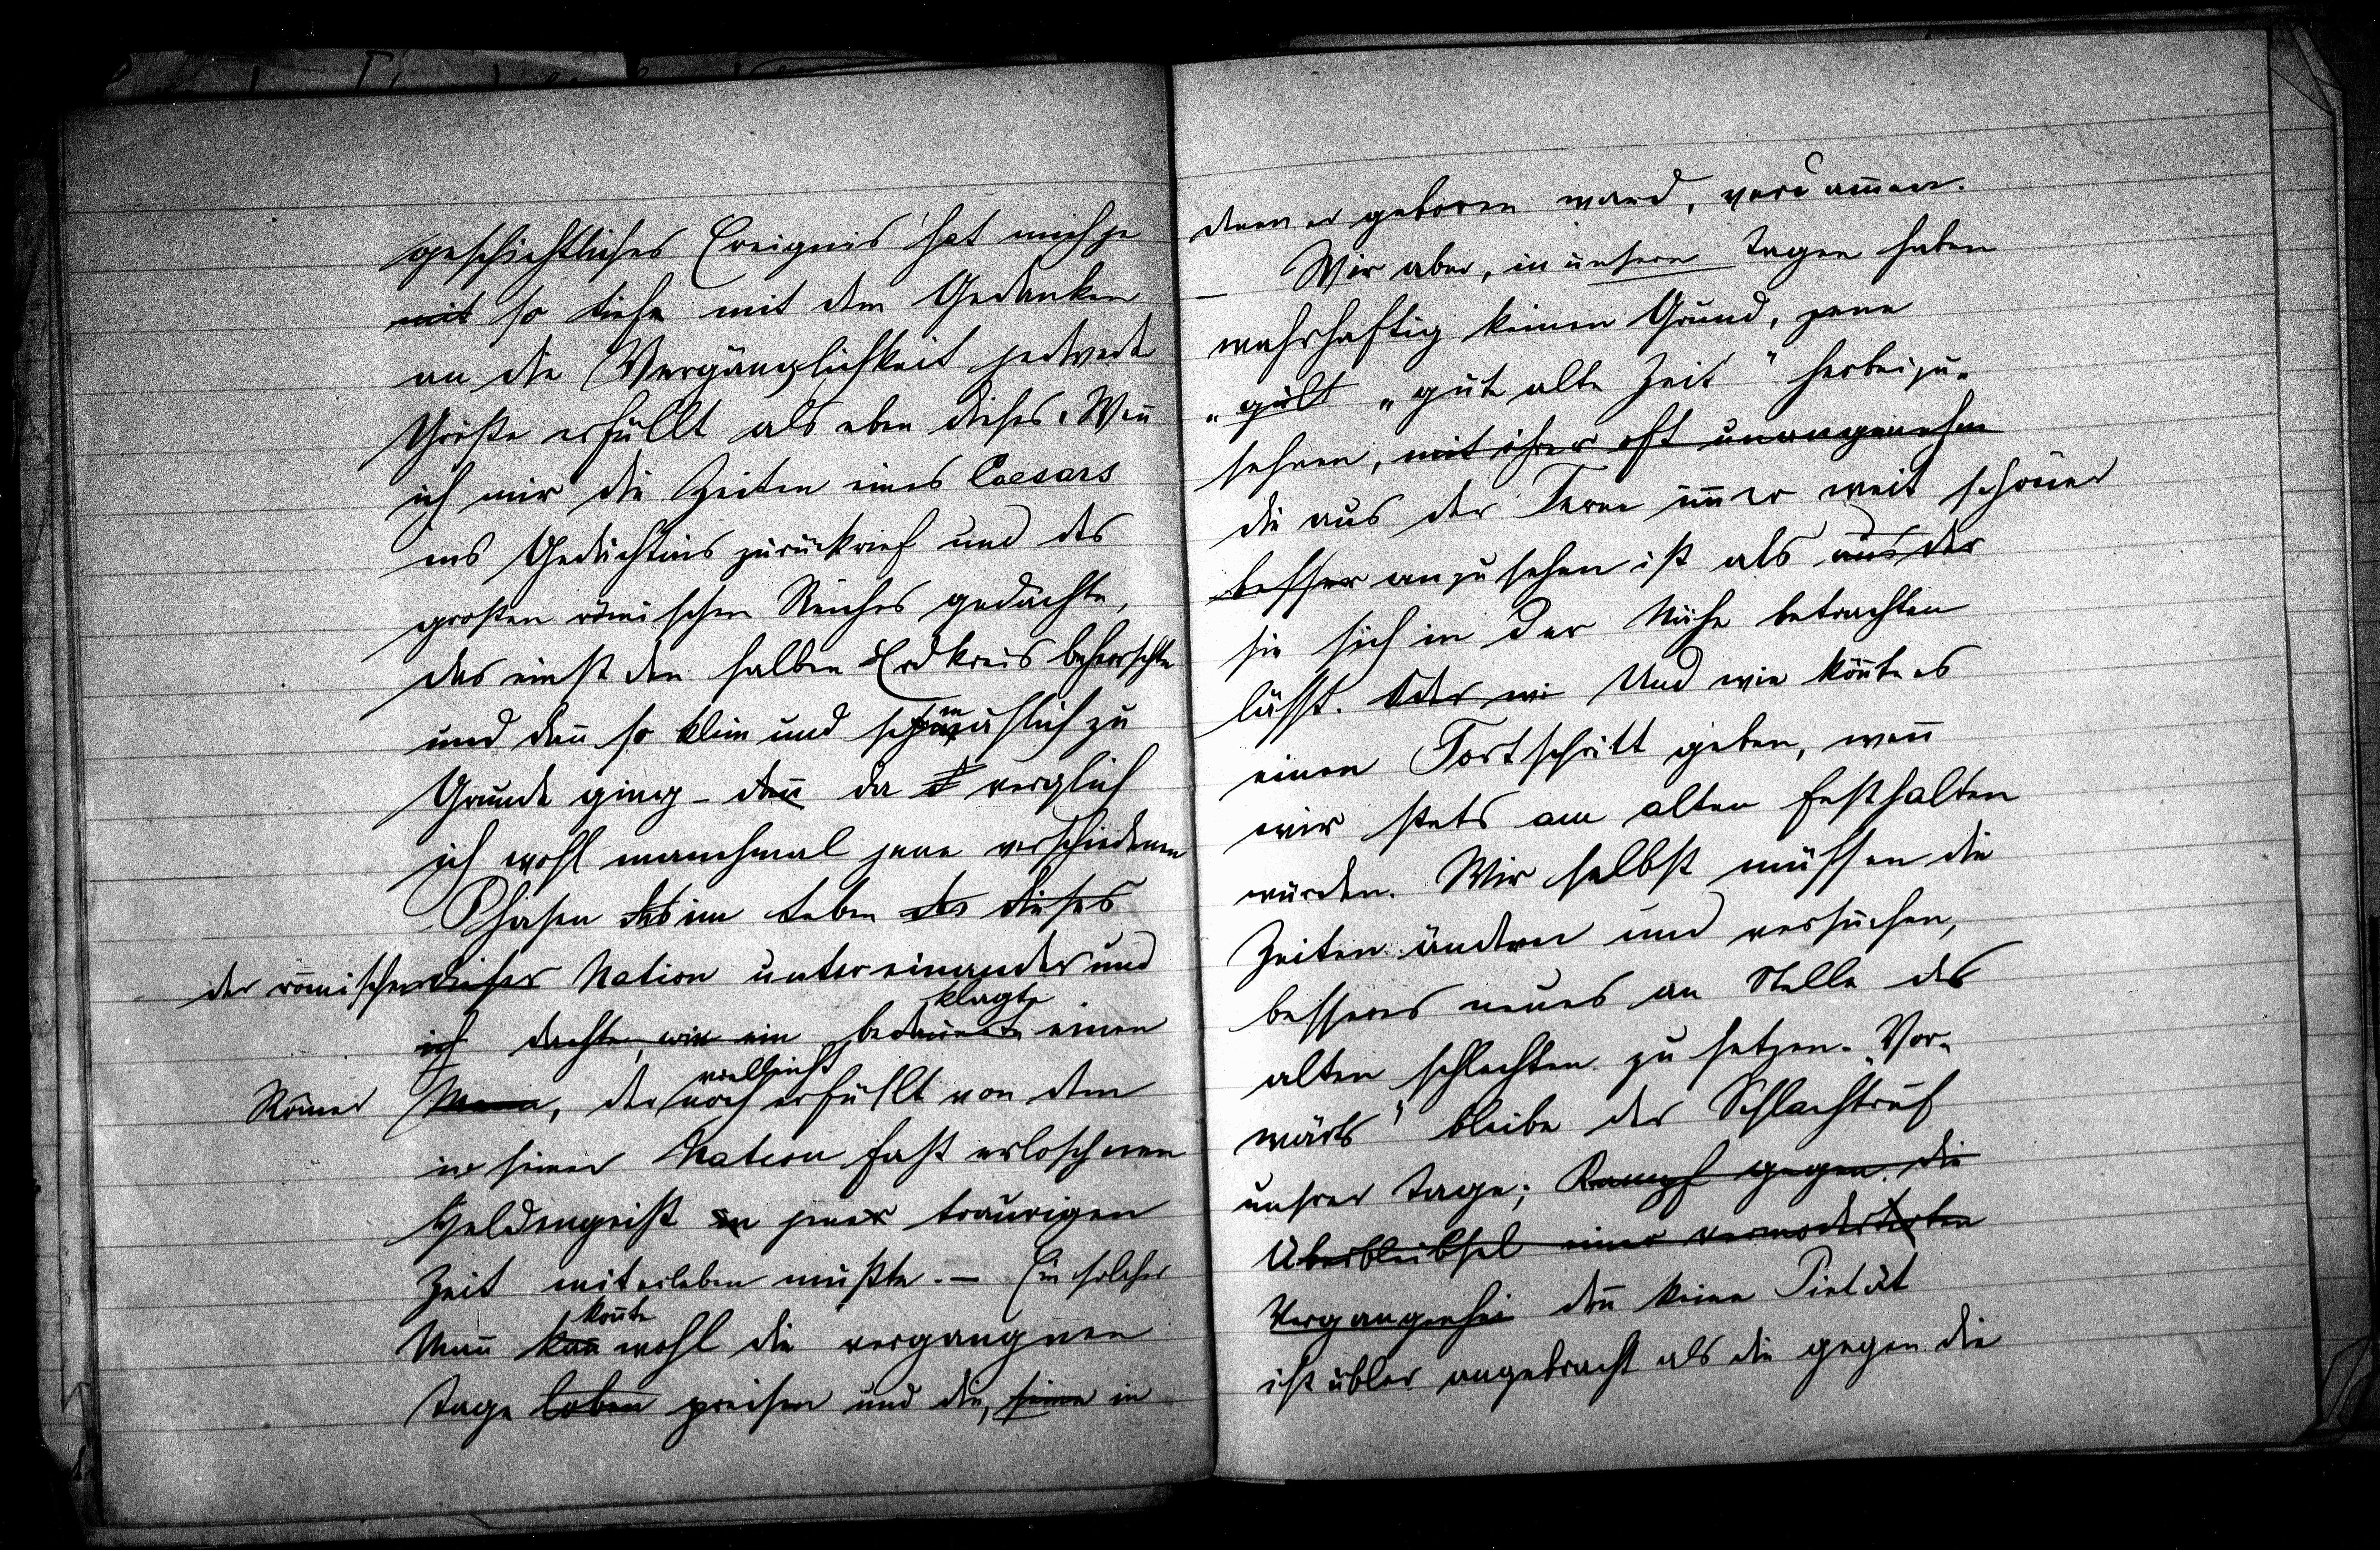 geschichtliches Ereignis hat mich je
mit so tiefe mit dem Gedanken
an die Vergänglichkeit jedwede
Größe erfüllt als eben dieses. Wen̄
ich mir die Zeiten eines Caesars
ins Gedächtnis zurückrief und des
großen römischen Reiches gedachte,
das einst den halben Erdkreis beherrschte
und dan̄ so klein und schmählich zu
Grunde ging – dan̄ da verglich
ich wohl manchmal jene verschiedenen
Phasen des im Leben des dieses
der römischen dieser Nation untereinander und
klagte
ich dachte, wie ein bedauerte einen
vielleicht
Römer Mann, der noch erfüllt von dem
in seiner Nation fast erloschenen
Heldengeist in jener traurigen
Zeit miterleben mußte. – Ein solcher
kon̄te
Man̄ kan̄ wohl die vergangnen
Tage loben preisen und die, seine in
denen er geboren ward, verdam̄en.
Wir aber, in unsern Tagen haben
wahrhaftig keinen Grund, jene
„gute „gute alte Zeit" herbeizu-
sehnen, mit ihrer oft unangenehm
die aus der Ferne im̄er weit schöner
besser anzusehen ist als aus der
sie sich in der Nähe betrachten
lässt. Oder wie Und wie kön̄te es
einen Fortschritt geben, wen̄
wir stets am alten festhalten
würden. Wir selbst müssen die
Zeiten ändern und versuchen,
besseres neues an Stelle des
alten schlechten zu setzen. „Vor-
wärts" bleibe der Schlachtruf
unsrer Tage; Kampf gegen die
Überbleibsel einer vermoderten
Vergangenhei den̄ keine Pietät
ist übler angebracht als die gegen die